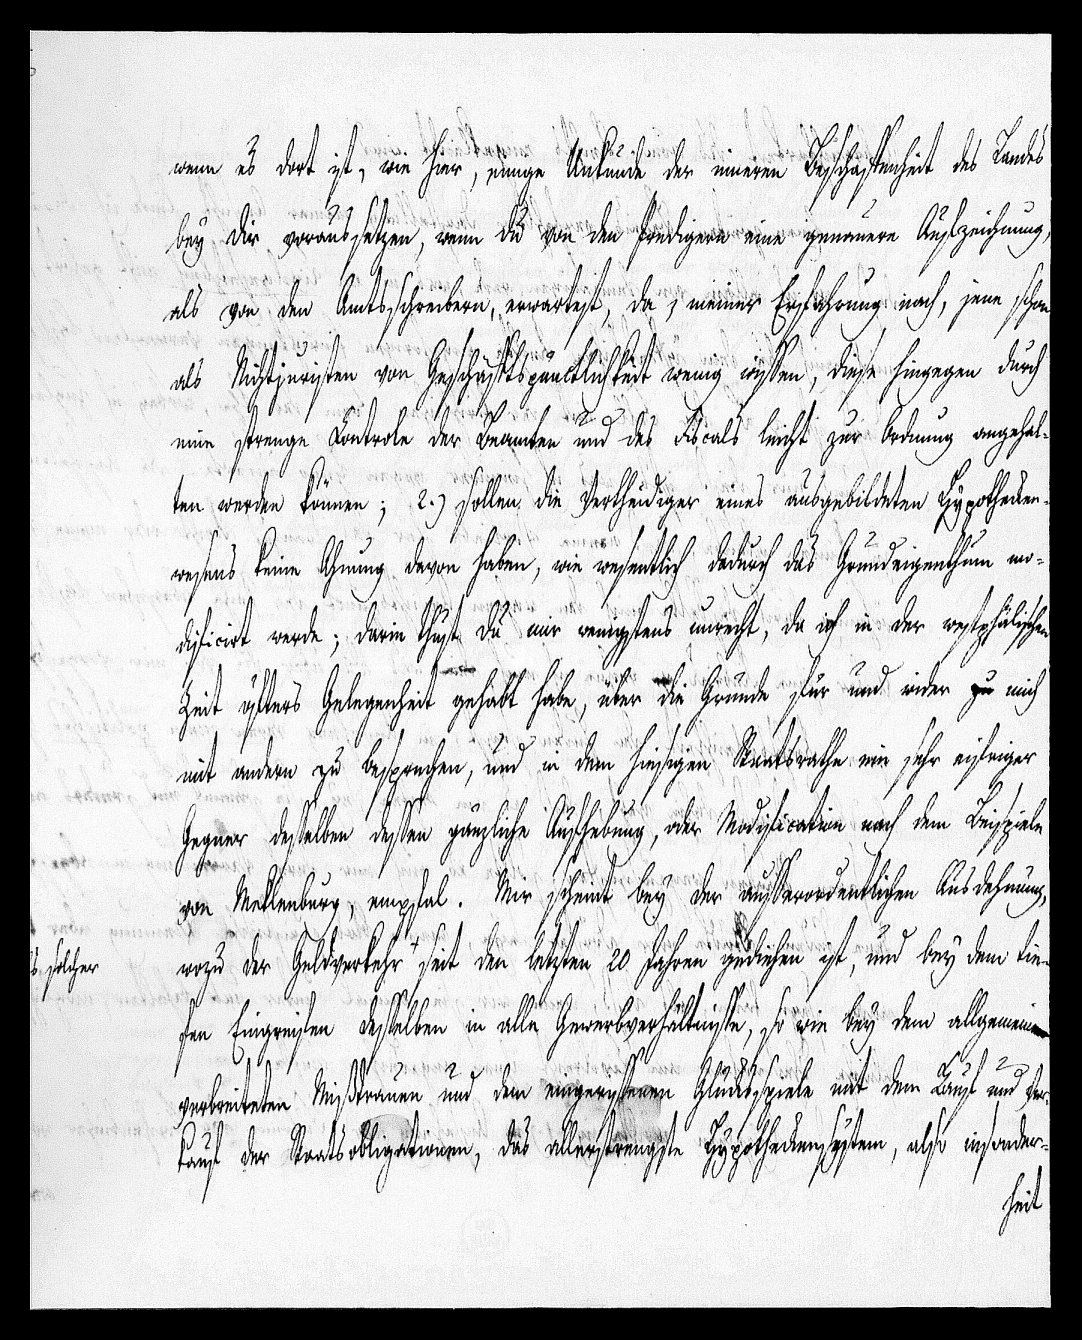 wenn es dort ist, wie hier, einige Unkunde der inneren Beschaffenheit des Landes
bey dir voraussetzen, wenn du von den Predigern eine genauere Aufzeichnung,
als von den Amtsschreibern, erwartest, da, meiner Erfahrung nach, jene schon
als Nichtjuristen von Geschäfftspünctlichkeit wenig wissen, diese hingegen durch
eine strenge Controle der Beamten und des Fiscals leicht zur Ordnung angehal-
ten werden können; 2.) sollen die Vertheidiger eines ausgebildeten Hypotheken-
wesens keine Ahnung davon haben, wie wesentlich dadurch das Grundeigenthum mo-
dificirt werde; darin thust du mir wenigstens unrecht, da ich in der westphälischen
Zeit öfters Gelegenheit gehabt habe, über die Gründe für und wider mich
mit andern zu besprechen, und in dem hiesigen Staatsrathe ein sehr eifriger
Gegner desselben dessen gänzliche Aufhebung, oder Modification nach dem Beispiele
von Meklenburg, empfal. Mir scheint bey der ausserordentlichen Ausdehnung,
wozu der Geldverkehr seit den letzten 20 Jahren gediehen ist, und bey dem tie-
solcher
fen Eingreifen desselben in alle Gewerbverhältnisse, so wie bey dem allgemein
verbreiteten Mißtrauen und dem eingerissenen Glücksspiele mit dem Kauf und Ver-
kauf der Staatsobligationen, das allerstrengste Hypothekensystem, also insonder-
heit